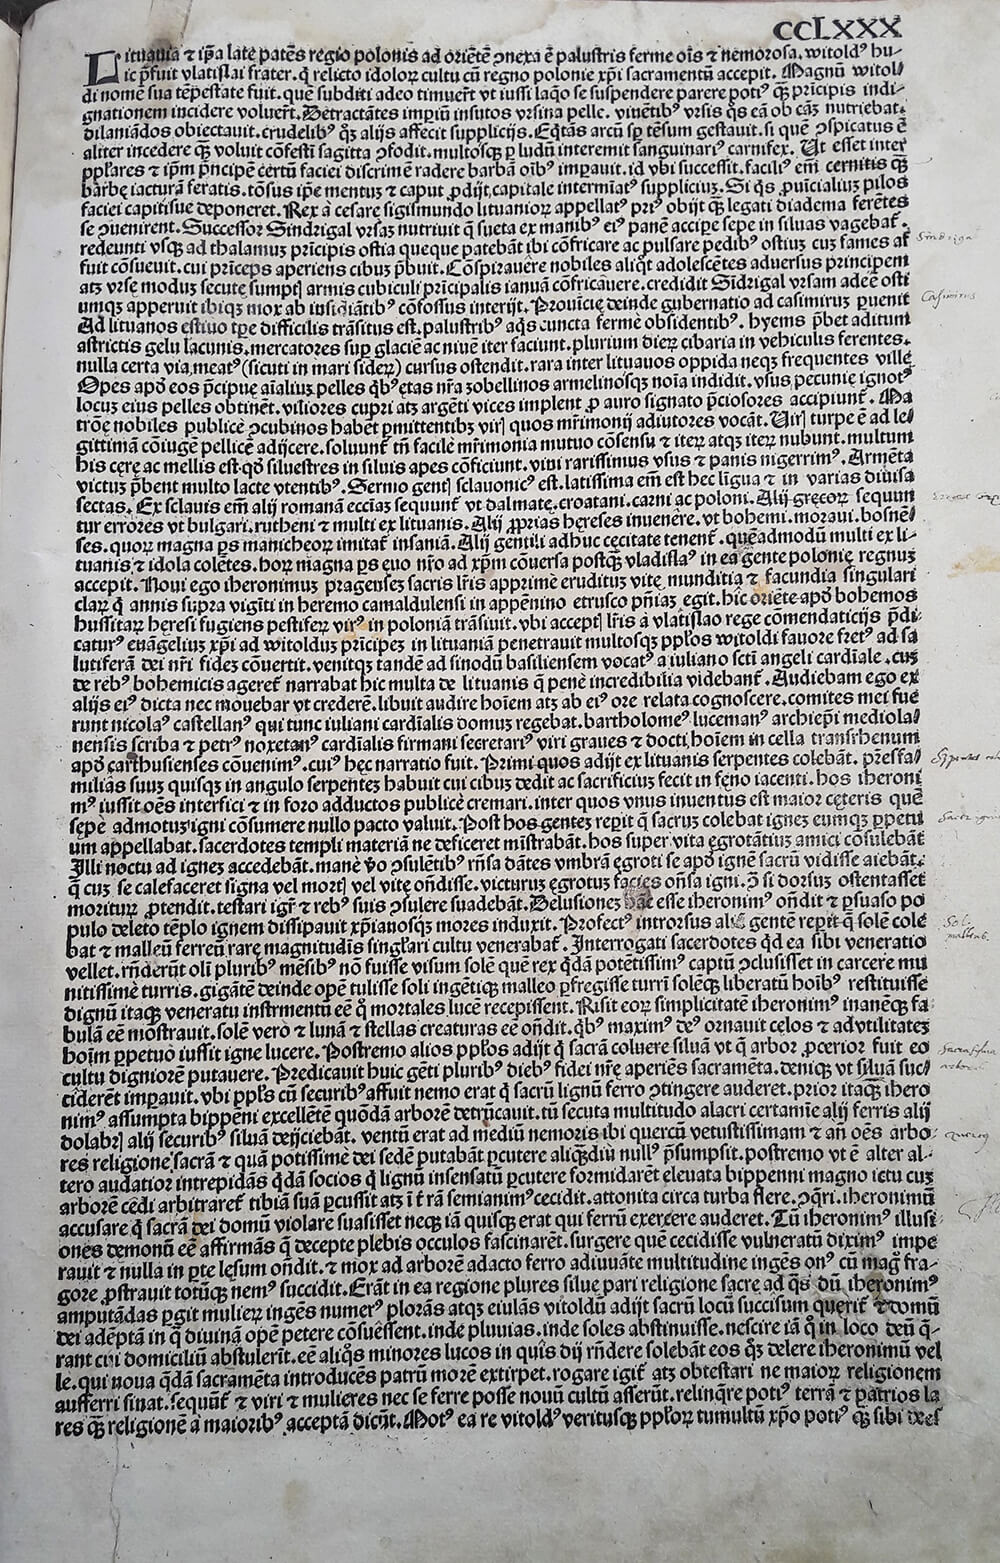 CCLXXX
Lituania ⁊ ip̄a late patēs regio polonis ad oriētē ↄnexa ē palustris ferme oīs ⁊ nemorosa. witoldꝰ hu-
ic p̄fuit vlatislai frater. q̄ relicto idoloꝝ cultu cū regno polonie xp̄i sacramentū accepit. Magnū witol
di nomē sua tēpestate fuit. quē subditi adeo timuerūt vt iussi laq̄o se suspendere parere potiꝰ qꝫ p̄ncipis indi-
gnationem incidere voluerūt. Detractātes imperiū insutos vrsina pelle. viuētibꝰ vrsis q̄s eā ob cāꝫ nutriebat.
dilaniādos obiectauit. crudelibꝰ qꝫ alijs affecit supplicijs. Eq̄tās arcū sp̄ tēsum gestauit. si quē ↄspicatus ē
aliter incedere qꝫ voluit cōfesti sagitta ↄfodit. multosqꝫ ꝑ ludū interemit sanguinariꝰ carnifex. Ut esset inter
pp̄lares ⁊ ip̄m p̄ncipē certū faciei discrimē radere barbā oībꝰ imꝑauit. id vbi successit. faciliꝰ em̄ cernitis qꝫ
barbe iacturā feratis. tōsus ip̄e mentuꝫ ⁊ caput ꝓdijt. capitale interminatꝰ suppliciuꝫ. Si q̄s ꝓuincialiuꝫ pilos
faciei capitisue deponeret. Rex a cesare sigismundo lituanioꝝ appellatꝰ priꝰ obijt qꝫ legati diadema ferētes
se ↄuenirent. Successor Sindrigal vrsaꝫ nutriuit q̄ sueta ex manibꝰ eiꝰ panē accipe sepe in siluas vagebat.
redeunti vsqꝫ ad thalamuꝫ p̄ncipis ostia queque patebāt ibi cōfricare ac pulsare pedibꝰ ostiuꝫ cuꝫ fames at
fuit cōsueuit. cui p̄nceps aperiens cibuꝫ p̄buit. Cōspirauēre nobiles aliq̄t adolescētes aduersus principem
atꝫ vrse moduꝫ secute sumptꝭ armis cubiculi p̄ncipalis ianuā cōfricauere. credidit Sidrigal vrsam adeē osti
umqꝫ apperuit ibiqꝫ mox ab insidiātibꝰ cōfossus interijt. Prouicie deinde gubernatio ad casimiruꝫ ꝑuenit
Ad lituanos estiuo tp̄e difficilis trāsitus est. palustribꝰ aq̄s cuncta fermē obsidentibꝰ. hyems p̄bet aditum
astrictis gelu lacunis. mercatores suꝑ glaciē ac niuē iter faciunt. plurium dieꝝ cibaria in vehiculis ferentes.
nulla certa via. meatꝰ (sicuti in mari sideꝝ) cursus ostendit. rara inter lituanos oppida neqꝫ frequentes ville
Opes apd̄ eos p̄cipue aīaliuꝫ pelles q̄bꝰ etas nr̄a zobellinos armelinosqꝫ noīa indidit. vsus pecunie ignotꝰ
locuꝫ eius pelles obtinēt. viliores cupri atꝫ argēti vices implent ꝓ auro signato p̄ciosores accipiunt. Ma
trōe nobiles publice ↄcubinos habēt ꝑmittentibꝫ virꝭ quos mr̄imonij adiutores vocāt. Virꝭ turpe ē ad le
gittimā cōiugē pellicē adijcere. soluunt tn̄ facile mr̄imonia mutuo cōsensu ⁊ iteꝝ atqꝫ iteꝝ nubunt. multum
his cere ac mellis est. qd̄ siluestres in siluis apes cōficiunt. vini rarissimus vsus ⁊ panis nigerrimꝰ. Armēta
victuꝫ p̄bent multo lacte vtentibꝰ. Sermo gentꝭ sclauonicꝰ est. latissima em̄ est hec lingua ⁊ in varias diuisa
sectas. Ex sclauis em̄ alij romanā ecclīaꝫ sequunt̄ vt dalmate. croatani. carni ac poloni. Alij grecoꝝ sequun
tur errores vt bulgari. rutheni ⁊ multi ex lituanis. Alij ꝓprias hereses inuenēre. vt bohemi. moraui. bosnē
ses. quoꝝ magna ps manicheoꝝ imitat̄ insaniā. Alij gentili adhuc cecitate tenent̄. quēadmodū multi ex li-
tuanis ⁊ idola colētes. hoꝝ magna ps euo nr̄o ad xp̄m cōuersa postqꝫ vladislaꝰ in ea gente polonie regnuꝫ
accepit. Noui ego iheronimuꝫ pragenseꝫ sacris lr̄is apprimē eruditus vite munditia ⁊ facundia singulari
claꝝ q̄ annis supra vigīti in heremo camaldulensi in appēnino etrusco pn̄iaꝫ egit. hic oriēte apd̄ bohemos
hussitaꝝ heresi fugiens pestiferꝫ virꝰ in poloniā trāsiuit. vbi acceptꝭ lr̄is a vlatislao rege cōmendaticijs p̄di-
caturꝰ euāgeliuꝫ xp̄i ad witolduꝫ p̄ncipeꝫ in lituaniā penetrauit multosqꝫ pp̄los witoldi fauore fretꝰ ad sa
lutiferā dei nr̄i fideꝫ cōuertit. venitqꝫ tandē ad sinodū basiliensem vocatꝰ a iuliano sctī angeli cardīale. cuꝫ
de rebꝰ bohemicis ageret̄ narrabat hic multa de lituanis q̄ penē incredibilia videbant̄. Audiebam ego ex
alijs eiꝰ dicta nec mouebar vt crederē. libuit audire hoīem atꝫ ab eiꝰ ore relata cognoscere. comites mei fue
runt nicolaꝰ castellanꝰ qui tunc iuliani cardīalis domuꝫ regebat. bartholomeꝰ lucemanꝰ archiepī mediola
nensis scriba ⁊ petrꝰ noxetanꝰ cardīalis firmani secretariꝰ viri graues ⁊ docti. hoīem in cella transrhenum
apd̄ carthusienses cōuenimꝰ. cuiꝰ hec narratio fuit. Primi quos adijt ex lituanis serpentes colebāt. pr̄esfa
milias suuꝫ quisqꝫ in angulo serpenteꝫ habuit cui cibuꝫ dedit ac sacrificiuꝫ fecit in feno iacenti. hos iheroni
mꝰ iussit oēs interfici ⁊ in foro adductos publice cremari. inter quos vnus inuentus est maior ceteris quē
sepe admotuꝫ igni cōsumere nullo pacto valuit. Post hos genteꝫ reperit q̄ sacruꝫ colebat igneꝫ eumqꝫ ꝑpetu
um appellabat. sacerdotes templi materiā ne deficeret mistrabāt. hos super vita egrotātiuꝫ amici cōsulebāt
Illi noctu ad igneꝫ accedebāt. manē vo ↄsulētibꝰ rn̄sa dātes vmbrā egroti se apd̄ ignē sacrū vidisse aiebāt.
q̄ cuꝫ se calefaceret signa vel mortꝭ vel vite on̄disse. victuruꝫ egrotuꝫ facies on̄sa igni. ꝯ̄ si dorsuꝫ ostentasset
morituꝝ ꝓtendit. testari igr̄ ⁊ rebꝰ suis ↄsulere suadebāt. Delusioneꝫ hāc esse iheronimꝰ on̄dit ⁊ ꝑsuaso po
pulo deleto tēplo ignem dissipauit xp̄ianosqꝫ mores induxit. Profectꝰ introrsus aliā gentē reperit q̄ solē cole
bat ⁊ malleū ferreū rare magnitudīs singl̄ari cultu venerabat̄. Interrogati sacerdotes qd̄ ea sibi veneratio
vellet. rn̄derūt oli pluribꝰ mēsibꝰ nō fuisse visum solē quē rex qd̄ā potētissimꝰ captū ↄclusisset in carcere mu
nitissime turris. gigātē deinde opē tulisse soli ingētiqꝫ malleo ꝑfregisse turrī solēqꝫ liberatū hoībꝰ restituisse
dignū itaqꝫ veneratu instrmentū eē q̄ mortales lucē recepissent. Risit eoꝝ simplicitatē iheronimꝰ inanēqꝫ fa-
bulā eē mōstrauit. solē verō ⁊ lunā ⁊ stellas creaturas eē on̄dit. q̄bꝰ maximꝰ deꝰ ornauit celos ⁊ ad vtilitateꝫ
hoīm ꝑpetuo iussit igne lucere. Postremo alios pp̄los adijt q̄ sacrā coluere siluā vt q̄ arbor ꝓcerior fuit eo
cultu digniorē putauere. Predicauit huic gēti pluribꝰ diebꝰ fidei nr̄e aperiēs sacramēta. deniqꝫ vt siluā suc
ciderēt imꝑauit. vbi pp̄ls cū securibꝰ affuit nemo erat q̄ sacrū lignū ferro ↄtingere auderet. prior itaqꝫ ihero
nimꝰ assumpta bippēni excellētē quōdā arborē detrūcauit. tū secuta multitudo alacri certamīe alij ferris alij
dolabrꝭ alij securibꝰ siluā deijciebāt. ventū erat ad mediū nemoris ibi quercū vetustissimam ⁊ añ oēs arbo-
res religione sacrā ⁊ quā potissime dei sedē putabāt ꝑcutere aliqd̄iu nullꝰ p̄sumpsit. postremo vt ē alter al-
tero audatior intrepidās qd̄ā socios q̄ lignū insensatū ꝑcutere formidarēt eleuata bippenni magno ictu cuꝫ
arborē cēdi arbitraret̄ tibiā suā ꝑcussit atꝫ ī trā semianimꝰ cecidit. attonita circa turba flere. ↄq̄ri. iheronimū
accusare q̄ sacrā dei domū violare suasisset neqꝫ iā quisqꝫ erat qui ferrū exercere auderet. Tū iheronimꝰ illusi-
ones demonū eē affirmās q̄ decepte plebis occulos fascinarēt. surgere quē cecidisse vulneratū diximꝰ impe
rauit ⁊ nulla in ꝑte lesum on̄dit. ⁊ mox ad arborē adacto ferro adiuuāte multitudine ingēs onꝰ cū mago fra-
gore ꝓstrauit totūqꝫ nemꝰ succidit. Erāt in ea regione plures silue pari religione sacre ad q̄s dū iheronimꝰ
amputādas ꝑgit mulieꝝ ingēs numerꝰ plorās atqꝫ eiulās vitoldū adijt sacrū locū succisum querit̄ ⁊ domū
dei adēptā in q̄ diuinā opē petere cōsuēssent. inde pluuias. inde soles abstinuisse. nescire iā q̄ in loco deū q̄-
rant cui domiciliū abstulerīt. eē aliq̄s minores lucos in quis dij rn̄dere solebāt eos qꝫ delere iheronimū vel
le. qui noua qd̄ā sacramēta introducēs patrū morē extirpet. rogare igit̄ atꝫ obtestari ne maioꝝ religionem
aufferri sinat. sequūt̄ ⁊ viri ⁊ mulieres nec se ferre posse nouū cultū asserūt. relinq̄re potiꝰ terrā ⁊ patrios la
res qꝫ religionē a maioribꝰ acceptā dicūt. Motꝰ ea re vitoldꝰ veritusqꝫ pp̄loꝝ tumultū xp̄o potiꝰ qꝫ sibi deesse
Casimirus